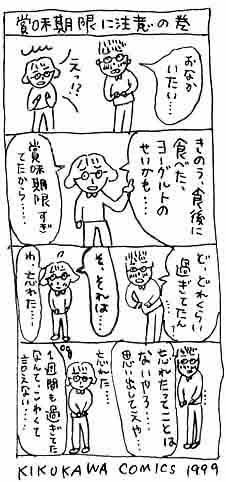 賞味期限に注意の巻
おなか
いたい…
えっ!?
きのう、食後に
食べた、
ヨーグルトの
せいかも…
賞味期限すぎ
てたから……
ど、どれくらい
過ぎてたん
そ、それは…
わ、忘れた…
忘れたってことは
ないやろ……
思い出してえや…
忘れた…
1週間も過ぎてた
なんて、こわくて
言えない……
KIKUKAWA COMICS 1999